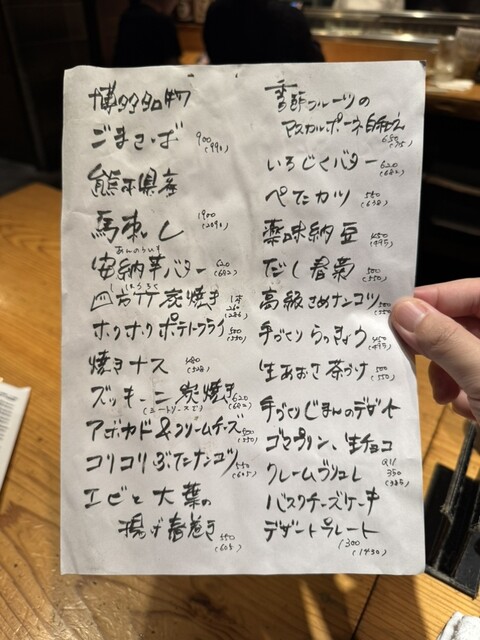 博多名物
ごまさば 900
(990)
熊本県産
馬刺し 1900
(2090)
あんのういも
安納芋バター 620
(682)
しほうちく
四方竹炭焼き 1本
260
(286)
ホクホクポテトフライ 500
(550)
焼きナス 480
(528)
ズッキーニ炭焼き 620
(682)
(ミートソースで)
アボカド&クリームチーズ 500
(550)
コリコリぶたナンコツ 550
(605)
エビと大葉の
揚げ春巻き 550
(605)
季節フルーツの
マスカルポーネ白和え
650
(715)
いちじくバター 620
(682)
ぺたカツ 580
(638)
薬味納豆 450
(495)
だし春菊 500
(550)
高級さめナンコツ 500
(550)
手づくりらっきょう 450
(495)
生あおさ茶づけ 500
(550)
手づくりじまんのデザート
ゴマプリン、生チョコ
クレームブリュレ
All
350
(385)
バスクチーズケーキ
デザートプレート
1300
(1430)